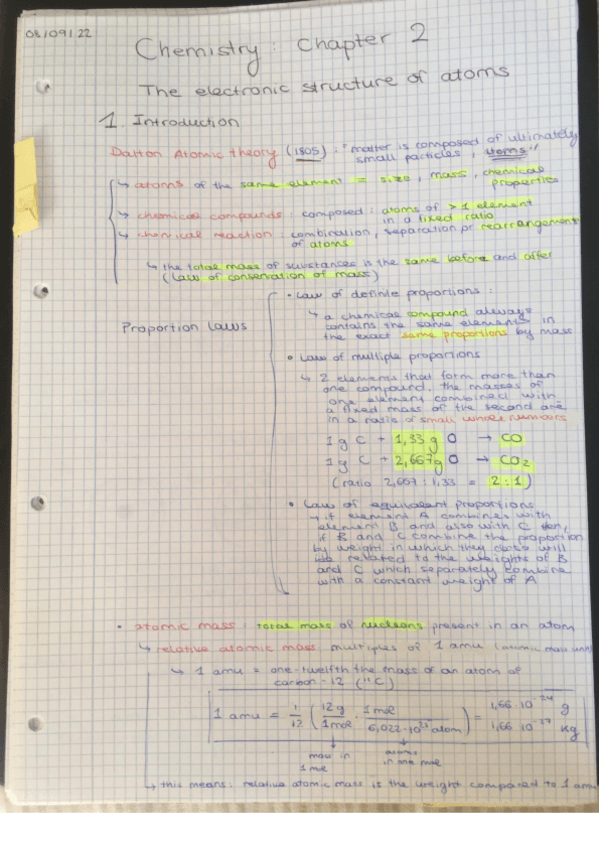 08/09/22
Chemistry: Chapter 2
The electronic structure of atoms
1. Introduction
Dalton Atomic theory (1805): "matter is composed of ultimately
small particles, atoms"
↳ atoms of the same element = size, mass, chemical
properties
↳ chemical compounds: composed: atoms of > 1 element
in a fixed ratio
↳ chemical reaction: combination, separation or rearrangement
of atoms
↳ the total mass of substances is the same before and after
(Law of conservation of mass)
Proportion laws
• Law of definite proportions:
↳ a chemical compound always
contains the same elements in
the exact same proportions by mass
• Law of multiple proportions
↳ 2 elements that form more than
one compound, the masses of
one element combined with
a fixed mass of the second are
in a ratio of small whole numbers
1 g C + 1,33 g O → CO
1 g C + 2,667 g O → CO2
(ratio 2,667 : 1,33 = 2:1)
• Law of equivalent proportions
→ if element A combines with
element B and also with C then,
if B and C combine the proportion
by weight in which they do so will
be related to the weights of B
and C which separately combine
with a constant weight of A
• atomic mass: total mass of nucleons present in an atom
↳ relative atomic mass: multiples of 1 amu (atomic mass unit)
↳ 1 amu = one-twelfth the mass of an atom of
carbon-12
1 amu = 1/12 (12g/1mol · 1mol/6,022·10²³atom) = 1,66·10⁻²⁴ g
1,66 10⁻²⁷ kg
mass in
1 mol
atoms
in one mol
↳ this means: relative atomic mass is the weight compared to 1 amu